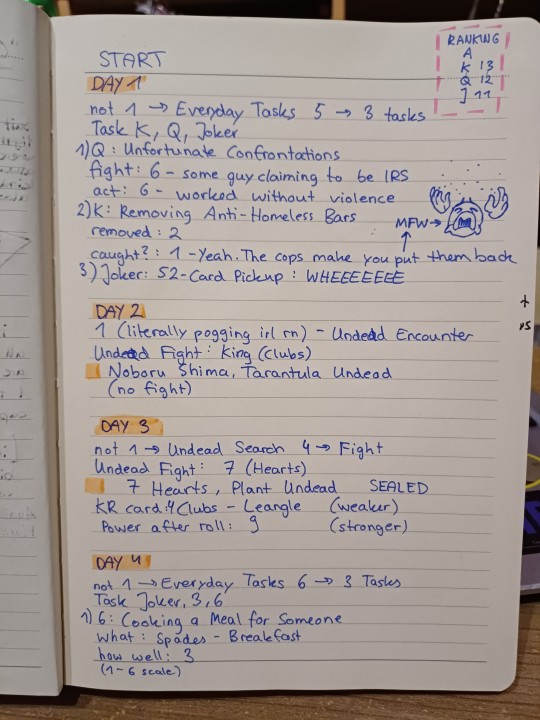 START
RANKING
A
K 13
Q 12
J 11
DAY 1
not 1 → Everyday Tasks 5 → 3 tasks
Task K, Q, Joker
1) Q: Unfortunate Confrontations
fight: 6 - some guy claiming to be IRS
act: 6 - worked without violence
2) K: Removing Anti-Homeless Bars
removed: 2
MFW →
caught?: 1 - Yeah. The cops make you put them back
3) Joker: 52-Card Pickup: WHEEEEEEE
DAY 2
1 (literally pogging irl rn) - Undead Encounter
Undead Fight: King (Clubs)
Noboru Shima, Tarantula Undead
(no fight)
DAY 3
not 1 → Undead Search 4 → Fight
Undead Fight: 7 (Hearts)
7 Hearts, Plant Undead SEALED
KR card: 4 Clubs - Leangle (weaker)
Power after roll: 9 (stronger)
DAY 4
not 1 → Everyday Tasks 6 → 3 Tasks
Task Joker, 3, 6
1) 6: Cooking a Meal for Someone
What: Spades - Breakfast
how well: 3
(1-6 scale)